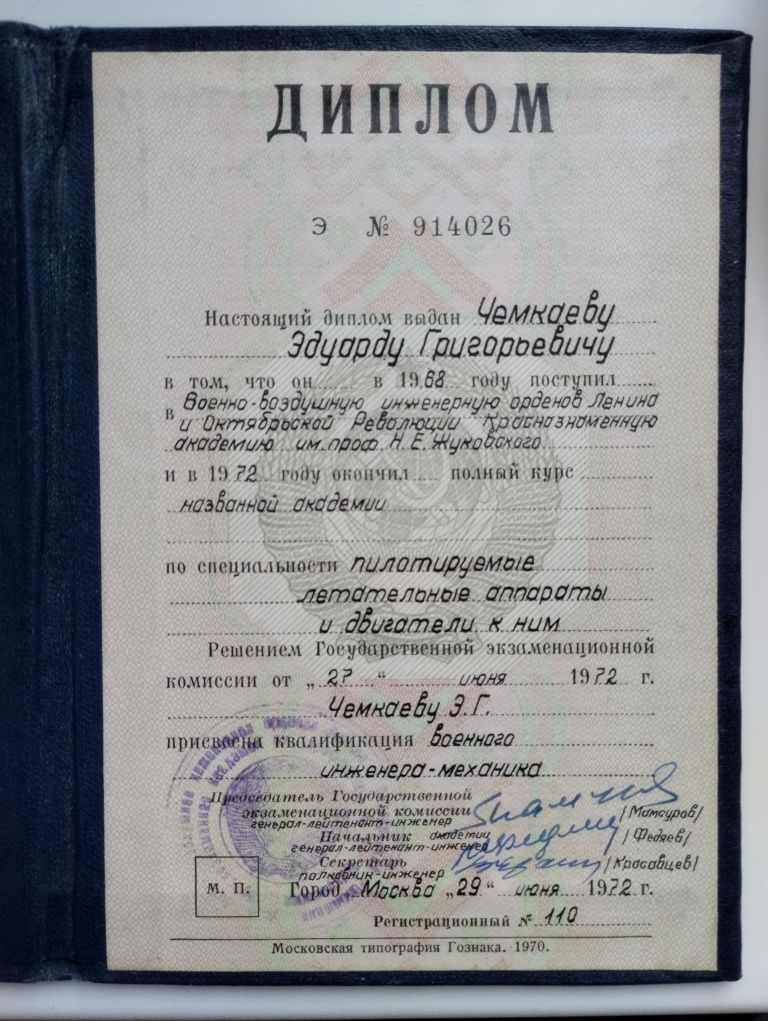 ДИПЛОМ
Э № 914026
Настоящий диплом выдан Чемкаеву
Эдуарду Григорьевичу
в том, что он в 1968 году поступил
в Военно-воздушную инженерную орденов Ленина
и Октябрьской Революции Краснознаменную
академию им. проф. Н. Е. Жуковского
и в 1972 году окончил полный курс
названной академии
по специальности пилотируемые
летательные аппараты
и двигатели к ним
Решением Государственной экзаменационной
комиссии от „27“ июня 1972 г.
Чемкаеву Э.Г.
присвоена квалификация военного
инженера-механика
Председатель Государственной
экзаменационной комиссии /Мамсуров/
генерал-лейтенант-инженер
Начальник академии /Федяев/
генерал-лейтенант-инженер
Секретарь /Красавцев/
полковник-инженер
М. П. Город Москва „29“ июня 1972 г.
Регистрационный № 110
Московская типография Гознака. 1970.